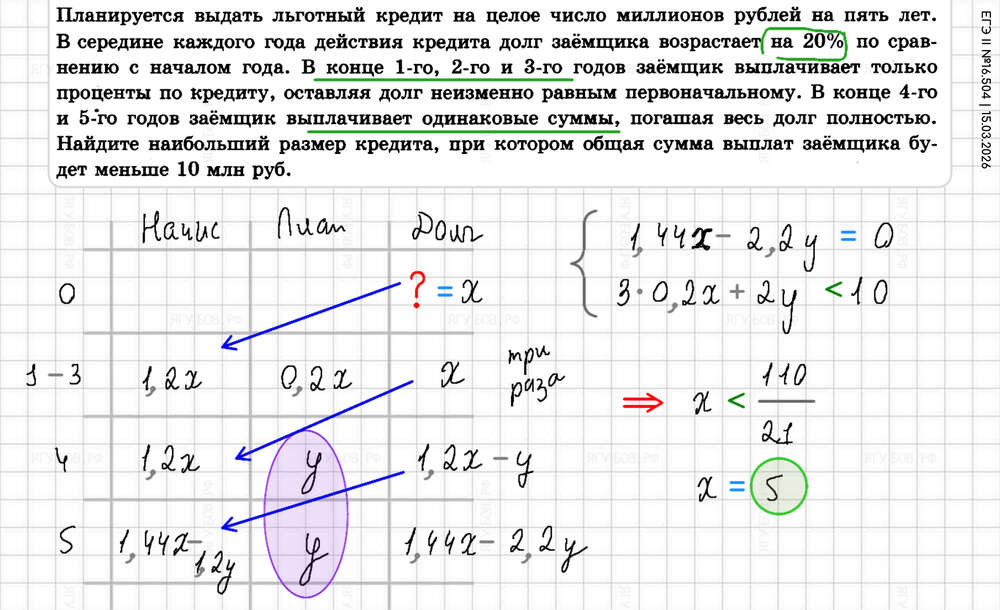 Планируется выдать льготный кредит на целое число миллионов рублей на пять лет.
В середине каждого года действия кредита долг заёмщика возрастает на 20% по срав-
нению с началом года. В конце 1-го, 2-го и 3-го годов заёмщик выплачивает только
проценты по кредиту, оставляя долг неизменно равным первоначальному. В конце 4-го
и 5-го годов заёмщик выплачивает одинаковые суммы, погашая весь долг полностью.
Найдите наибольший размер кредита, при котором общая сумма выплат заёмщика бу-
дет меньше 10 млн руб.
ЕГЭ II №16.504 | 15.03.2026
Начис Плат Долг
0 ? = x
1-3 1,2x 0,2x x три раза
4 1,2x y 1,2x - y
5 1,44x - 1,2y y 1,44x - 2,2y
1,44x - 2,2y = 0
3·0,2x + 2y < 10
⇒ x < 110/21
x = 5
ЯГУБОВ.РФ